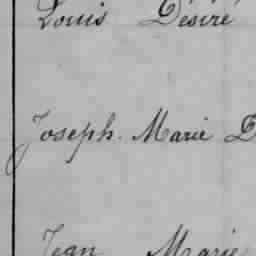 Louis Désiré
Joseph. Marie
Jean Marie